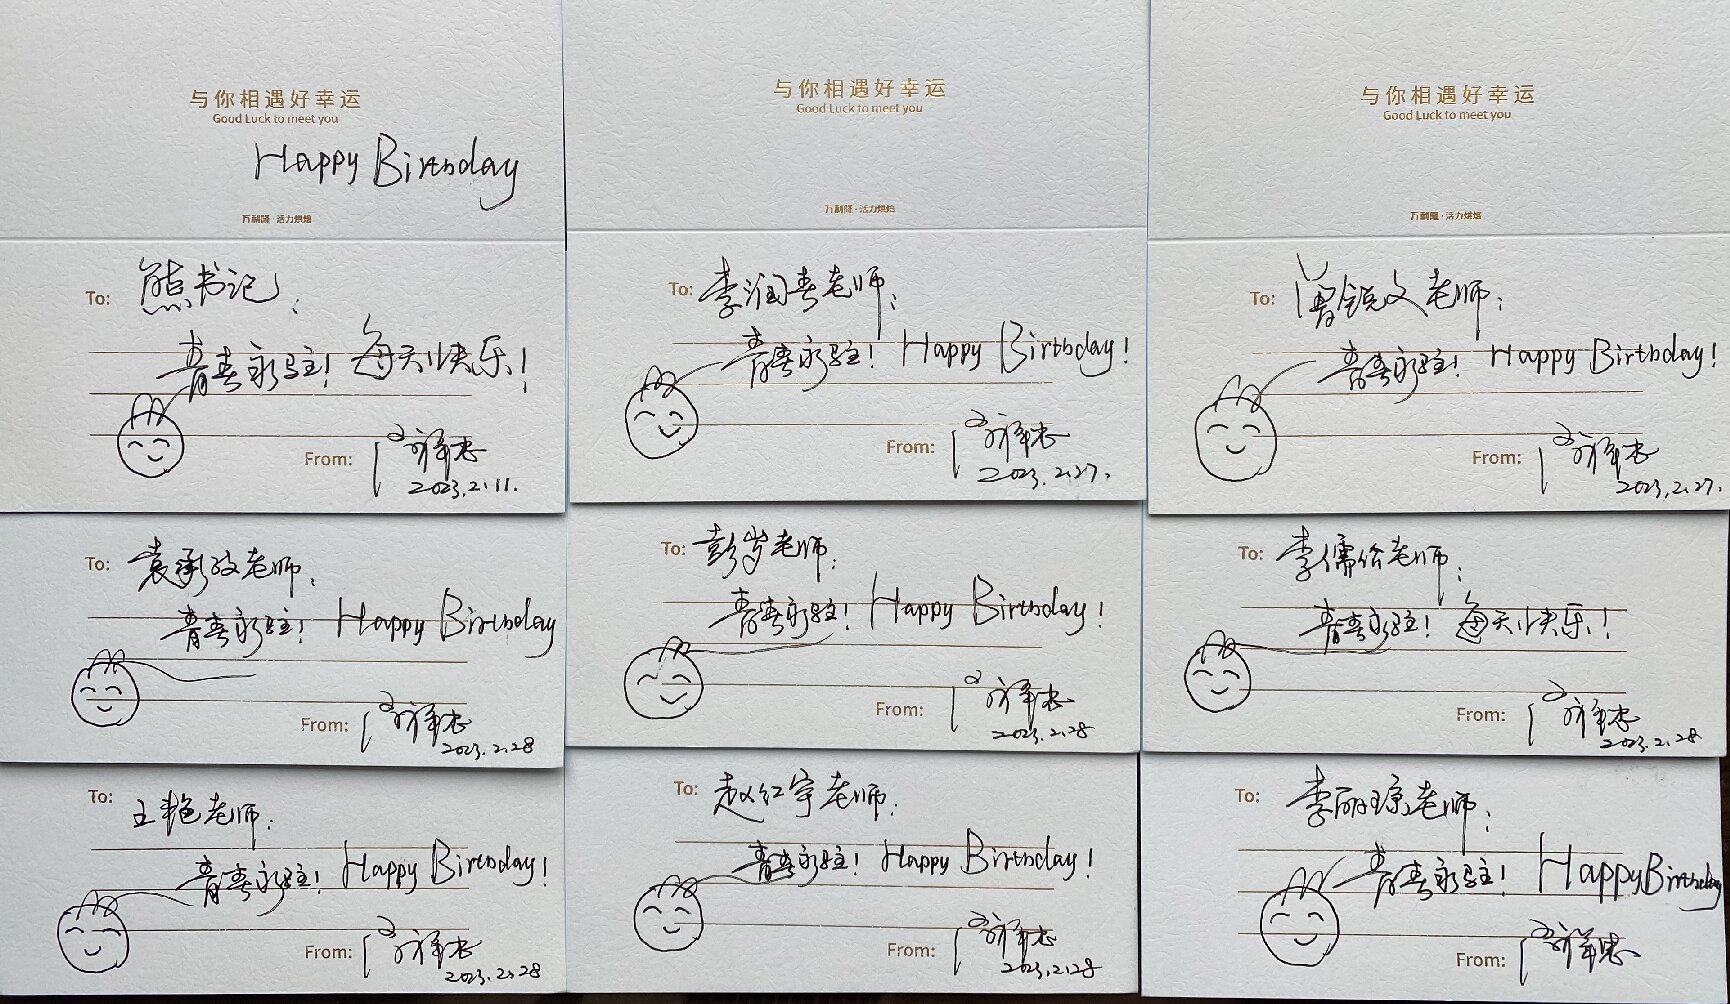 与你相遇好幸运
Good Luck to meet you
Happy Birthday
万利隆·活力烘焙
To: 熊书记:
青春永驻! 每天快乐!
From:
2023.2.11.
与你相遇好幸运
Good Luck to meet you
万利隆·活力烘焙
To: 李润春老师:
青春永驻! Happy Birthday!
From:
2023.2.27.
与你相遇好幸运
Good Luck to meet you
万利隆·活力烘焙
To: 曾锐文老师:
青春永驻! Happy Birthday!
From:
2023.2.27.
To: 袁承玫老师:
青春永驻! Happy Birthday
From:
2023.2.28
To: 彭岁老师:
青春永驻! Happy Birthday!
From:
2023.2.28
To: 李儒伶老师:
青春永驻! 每天快乐!
From:
2023.2.28
To: 王艳老师:
青春永驻! Happy Birthday!
From:
2023.2.28
To: 赵红宇老师:
青春永驻! Happy Birthday!
From:
2023.2.28
To: 李丽琼老师:
青春永驻! Happy Birthday
From: